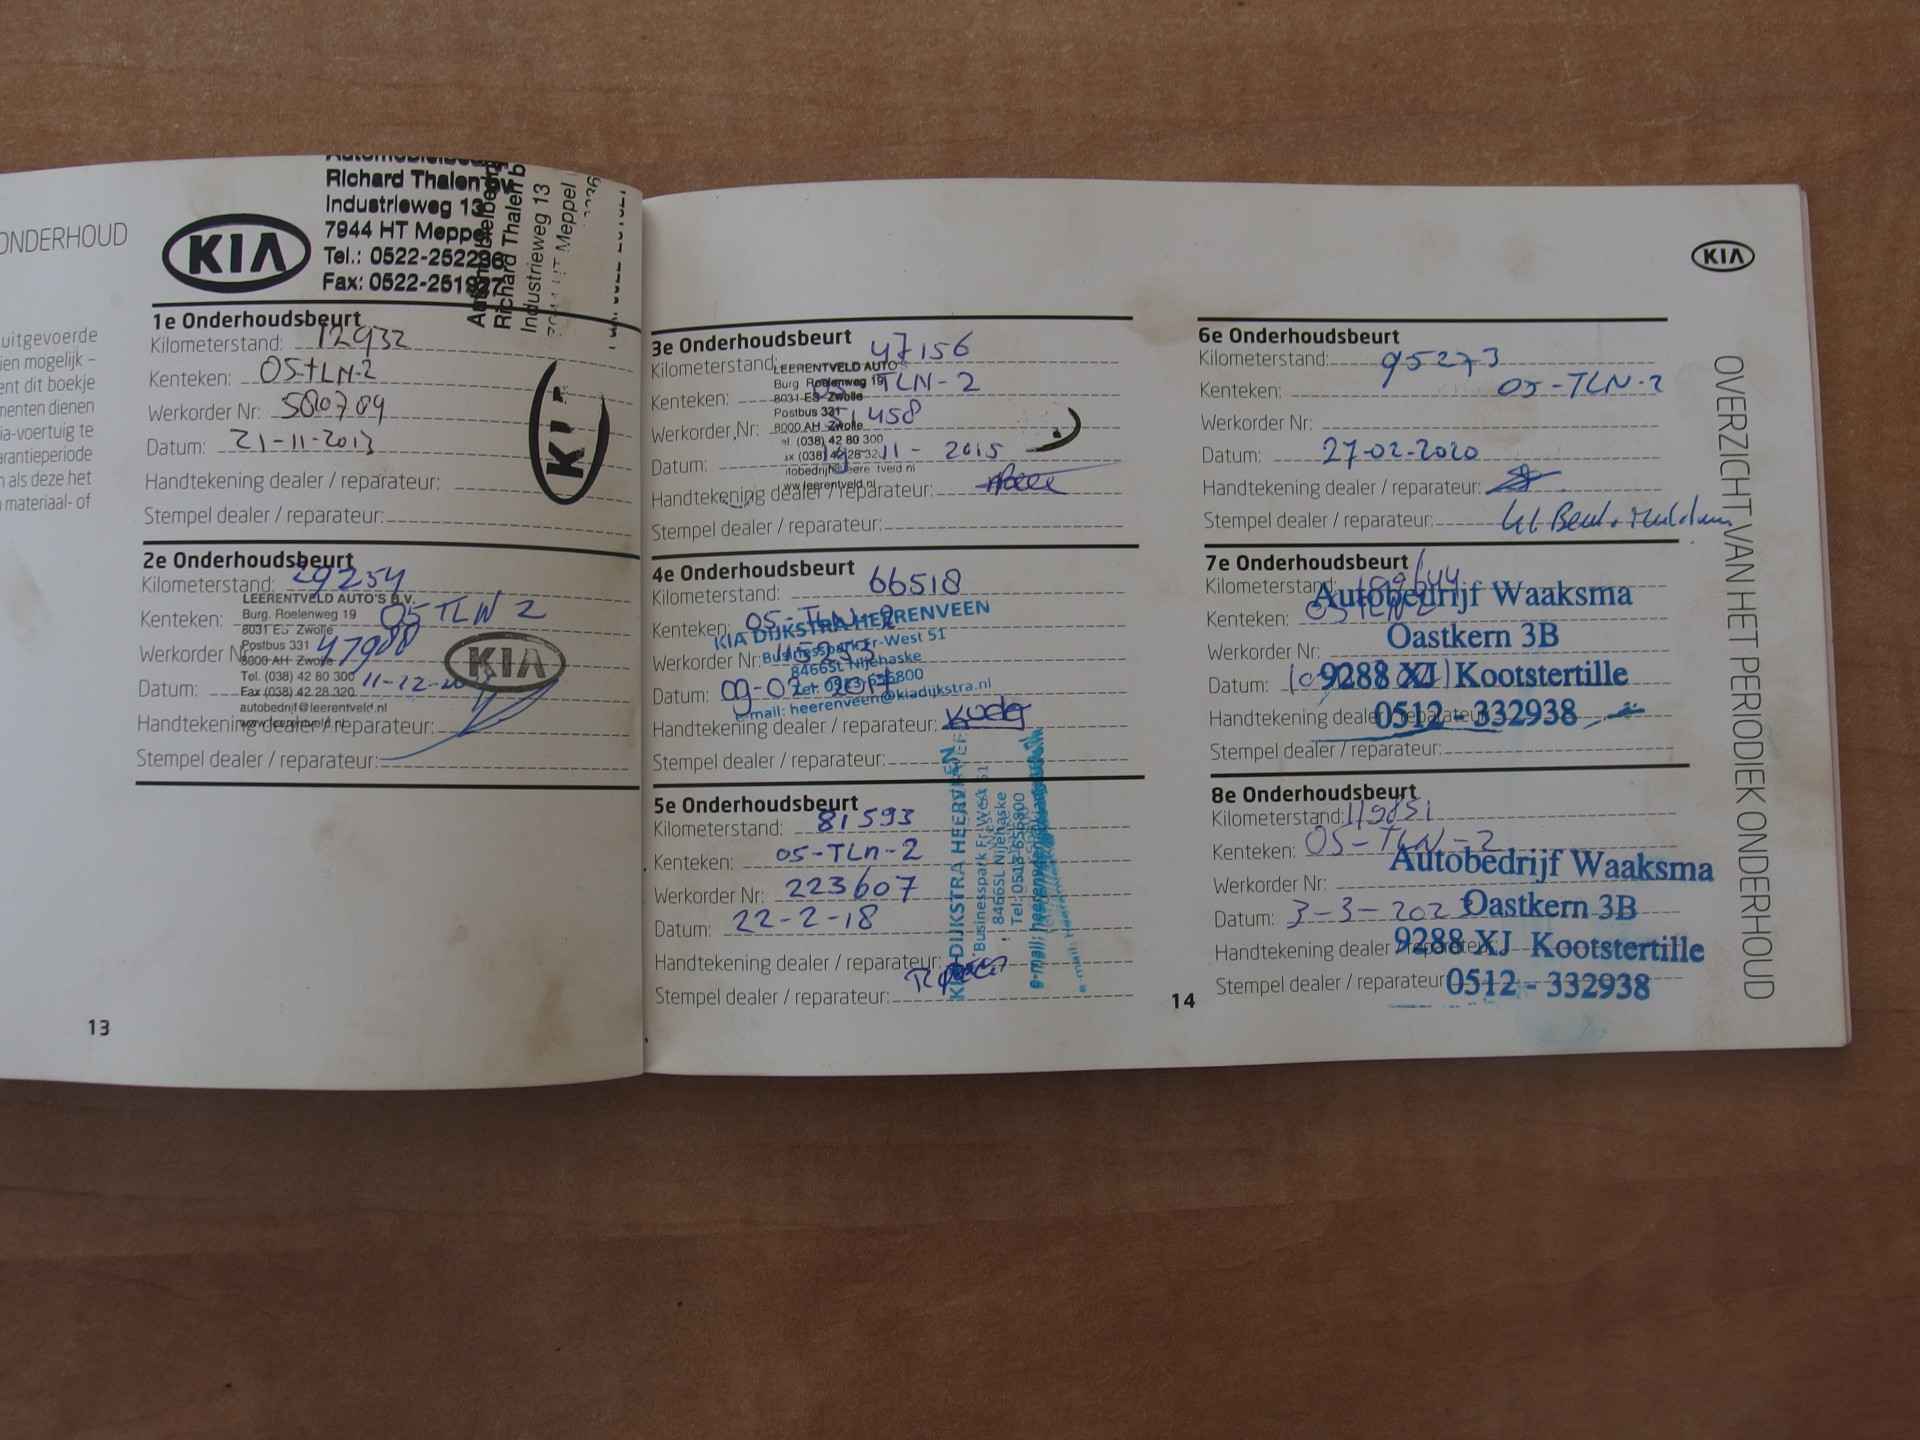 ONDERHOUD
uitgevoerde
ien mogelijk –
ent dit boekje
menten dienen
ia-voertuig te
arantieperiode
n als deze het
materiaal- of
13
KIA
Richard Thalen bv
Industrieweg 13
7944 HT Meppel
Tel.: 0522-252236
Fax: 0522-251927
Richard Thalen b
Industrieweg 13
Meppel
1e Onderhoudsbeurt
Kilometerstand: 12932
Kenteken: 05-TLN-2
Werkorder Nr: 500709
Datum: 21-11-2013
Handtekening dealer / reparateur:
Stempel dealer / reparateur:
2e Onderhoudsbeurt
Kilometerstand: 29254
LEERENTVELD AUTO'S B.V.
Burg. Roelenweg 19
Kenteken: 05 TLN 2
8031 ES Zwolle
Postbus 331
Werkorder Nr 47988
8000 AH Zwolle
KIA
Tel. (038) 42 80 300
Datum: 11-12-
Fax (038) 42 28 320
autobedrijf@leerentveld.nl
Handtekening dealer / reparateur:
www.leerentveld.nl
Stempel dealer / reparateur:
3e Onderhoudsbeurt
Kilometerstand: 47156
LEERENTVELD AUTO'S
Burg Roelenweg 19
Kenteken: 05 TLN-2
8031 ES Zwolle
Postbus 331
Werkorder Nr: 51458
8000 AH Zwolle
(038) 42 80 300
Datum: 19 11 - 2015
Handtekening dealer / reparateur:
www.leerentveld.nl
Stempel dealer / reparateur:
4e Onderhoudsbeurt
Kilometerstand: 66518
Kenteken: 05-TLN-2
KIA DIJKSTRA HEERENVEEN
Businesspark Fr-West 51
Werkorder Nr:
8466SL Nijehaske
Datum: 09-02-2017
Tel: 0513-656800
e-mail: heerenveen@kiadijkstra.nl
Handtekening dealer / reparateur:
Stempel dealer / reparateur:
5e Onderhoudsbeurt
Kilometerstand: 81593
Kenteken: 05-TLn-2
Werkorder Nr: 223607
Datum: 22-2-18
Handtekening dealer / reparateur:
Stempel dealer / reparateur:
KIA DIJKSTRA HEERENVEEN
Businesspark Fr-West 51
8466SL Nijehaske
Tel: 0513-656800
KIA
6e Onderhoudsbeurt
Kilometerstand: 95273
Kenteken: 05-TLN-2
Werkorder Nr:
Datum: 27-02-2020
Handtekening dealer / reparateur:
Stempel dealer / reparateur:
7e Onderhoudsbeurt
Kilometerstand:
Autobedrijf Waaksma
Kenteken: 05 TLN 2
Oastkern 3B
Werkorder Nr:
Datum:
9288 XJ Kootstertille
Handtekening dealer / reparateur:
0512 - 332938
Stempel dealer / reparateur:
8e Onderhoudsbeurt
Kilometerstand: 119851
Kenteken: 05-TLN-2
Autobedrijf Waaksma
Werkorder Nr:
Datum: 3-3-202
Oastkern 3B
Handtekening dealer / reparateur:
9288 XJ Kootstertille
Stempel dealer / reparateur
0512 - 332938
14
OVERZICHT VAN HET PERIODIEK ONDERHOUD